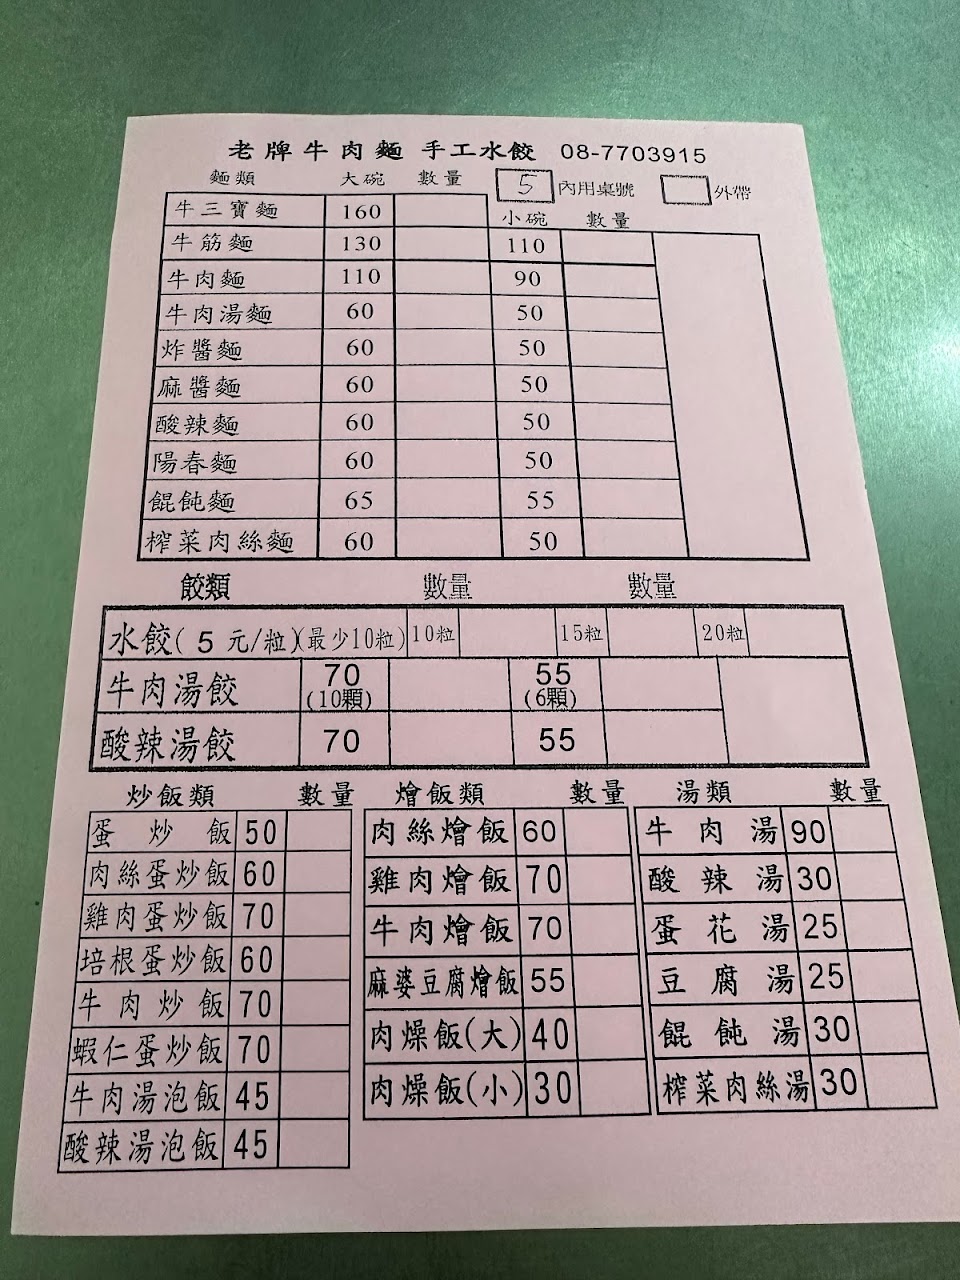 老牌牛肉麵 手工水餃 08-7703915
麵類 大碗 數量 5 內用桌號 外帶
牛三寶麵 160 小碗 數量
牛筋麵 130 110
牛肉麵 110 90
牛肉湯麵 60 50
炸醬麵 60 50
麻醬麵 60 50
酸辣麵 60 50
陽春麵 60 50
餛飩麵 65 55
榨菜肉絲麵 60 50
餃類 數量 數量
水餃(5元/粒)(最少10粒) 10粒 15粒 20粒
牛肉湯餃 70 (10顆) 55 (6顆)
酸辣湯餃 70 55
炒飯類 數量
蛋炒飯 50
肉絲蛋炒飯 60
雞肉蛋炒飯 70
培根蛋炒飯 60
牛肉炒飯 70
蝦仁蛋炒飯 70
牛肉湯泡飯 45
酸辣湯泡飯 45
燴飯類 數量
肉絲燴飯 60
雞肉燴飯 70
牛肉燴飯 70
麻婆豆腐燴飯 55
肉燥飯(大) 40
肉燥飯(小) 30
湯類 數量
牛肉湯 90
酸辣湯 30
蛋花湯 25
豆腐湯 25
餛飩湯 30
榨菜肉絲湯 30